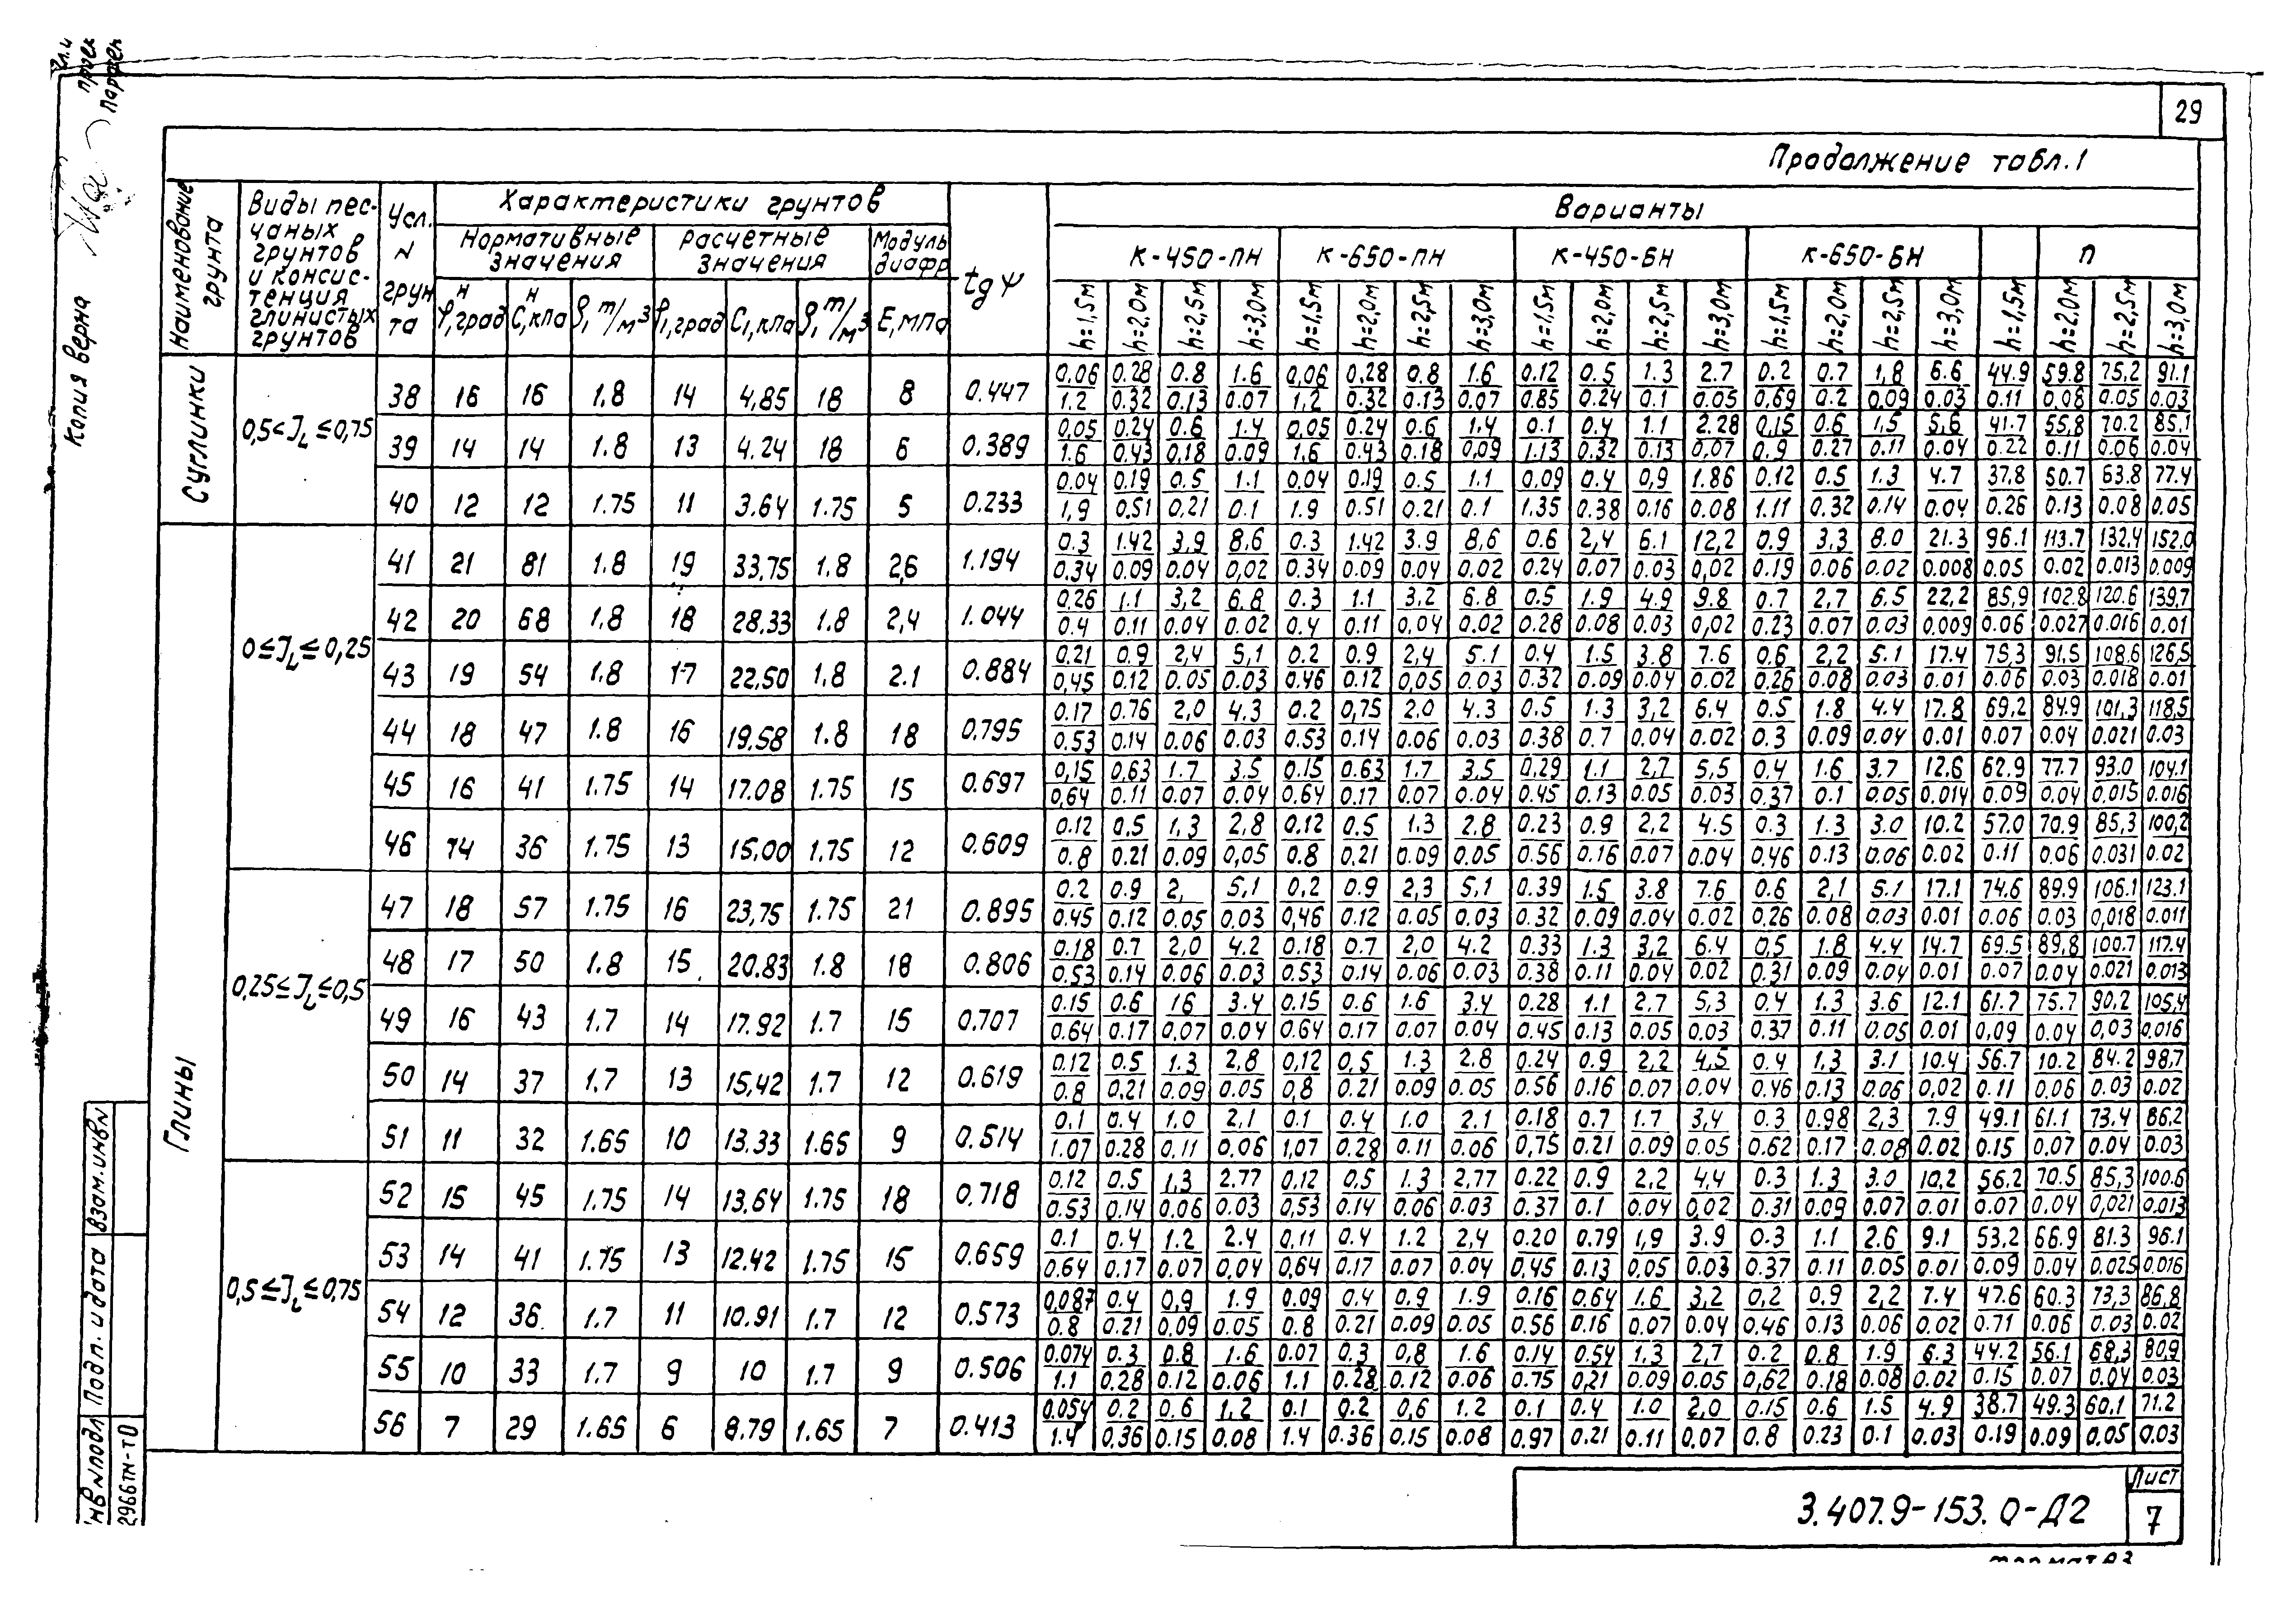 29
Продолжение табл.1
Наименование грунта
Виды песчаных грунтов и консистенция глинистых грунтов
Усл. N грунта
Характеристики грунтов
Варианты
Нормативные значения
Расчетные значения
Модуль диафр
tg ψ
К-450-ПН
К-650-ПН
К-450-БН
К-650-БН
П
φ,н град
С,н кПа
ρ, т/м3
φ1,град
С1,кПа
ρ, т/м3
Е,МПа
h=1,5м h=2,0м h=2,5м h=3,0м h=1,5м h=2,0м h=2,5м h=3,0м h=1,5м h=2,0м h=2,5м h=3,0м h=1,5м h=2,0м h=2,5м h=3,0м h=1,5м h=2,0м h=2,5м h=3,0м
Суглинки
0,5<JL≤0,75
0,06 0.28 0.8 1.6 0,06 0.28 0.8 1.6 0.12 0.5 1.3 2.7 0.2 0.7 1,8 6.6 44.9 59.8 75,2 91.1
38 16 16 1.8 14 4,85 18 8 0.447
1.2 0.32 0.13 0.07 1,2 0.32 0.13 0,07 0.85 0.24 0.1 0.05 0,69 0.2 0,09 0.03 0.11 0,08 0.05 0.03
0,05 0.24 0.6 1.4 0.05 0.24 0.6 1.4 0.1 0.4 1.1 2.28 0,15 0.6 1,5 5,6 41.7 55,8 70.2 85,1
39 14 14 1.8 13 4.24 18 6 0.389
1.6 0,43 0.18 0.09 1,6 0.43 0.18 0,09 1.13 0.32 0.13 0,07 0.9 0.27 0.11 0.04 0.22 0.11 0.06 0.04
0.04 0.19 0.5 1.1 0,04 0.19 0.5 1.1 0,09 0.4 0,9 1.86 0.12 0.5 1.3 4.7 37,8 50.7 63.8 77.4
40 12 12 1.75 11 3.64 1.75 5 0.233
1,9 0.51 0,21 0.1 1.9 0.51 0.21 0.1 1.35 0.38 0.16 0.08 1.11 0.32 0.14 0.04 0.26 0.13 0.08 0.05
Глины
0≤JL≤0,25
0.3 1.42 3,9 8,6 0.3 1.42 3.9 8,6 0.6 2,4 6.1 12,2 0.9 3,3 8.0 21.3 96.1 113.7 132,4 152.0
41 21 81 1.8 19 33,75 1.8 2,6 1.194
0.34 0.09 0.04 0,02 0.34 0.09 0.04 0.02 0.24 0.07 0.03 0,02 0.19 0,06 0.02 0.008 0.05 0.02 0.013 0.009
0,26 1.1 3,2 6.8 0.3 1.1 3,2 6.8 0.5 1.9 4.9 9.8 0.7 2,7 6.5 22,2 85,9 102.8 120.6 139,7
42 20 68 1,8 18 28,33 1.8 2,4 1.044
0.4 0.11 0.04 0.02 0.4 0.11 0,04 0.02 0.28 0.08 0.03 0,02 0.23 0.07 0.03 0.009 0.06 0.027 0.016 0.01
0.21 0.9 2,4 5,1 0.2 0.9 2,4 5.1 0.4 1.5 3.8 7.6 0.6 2,2 5.1 17.4 75,3 91,5 108.6 126,5
43 19 54 1.8 17 22,50 1,8 2.1 0.884
0,45 0.12 0.05 0.03 0.46 0.12 0,05 0.03 0.32 0.09 0.04 0.02 0.26 0.08 0.03 0.01 0.06 0.03 0.018 0.01
0.17 0.76 2,0 4.3 0.2 0,75 2.0 4.3 0.5 1.3 3,2 6.4 0.5 1.8 4.4 17.8 69,2 84,9 101,3 118,5
44 18 47 1.8 16 19.58 1.8 18 0,795
0.53 0.14 0.06 0.03 0.53 0.14 0.06 0.03 0.38 0.7 0.04 0.02 0.3 0.09 0.04 0.01 0.07 0.04 0.021 0.03
0,15 0,63 1.7 3.5 0.15 0.63 1.7 3,5 0,29 1.1 2,7 5,5 0.4 1.6 3.7 12.6 62.9 77.7 93.0 104.1
45 16 41 1.75 14 17.08 1.75 15 0.697
0,64 0.11 0.07 0.04 0.64 0.17 0.07 0.04 0.45 0.13 0.05 0.03 0.37 0.1 0.05 0.014 0.09 0.04 0,015 0.016
0.12 0.5 1.3 2,8 0.12 0.5 1.3 2.8 0.23 0.9 2,2 4.5 0.3 1.3 3.0 10.2 57.0 70.9 85,3 100,2
46 74 36 1.75 13 15,00 1.75 12 0.609
0.8 0.21 0.09 0,05 0.8 0,21 0.09 0.05 0.56 0.16 0,07 0.04 0,46 0.13 0,06 0.02 0.11 0.06 0.031 0.02
0,25≤JL≤0,5
0.2 0.9 2, 5,1 0,2 0.9 2,3 5,1 0.39 1.5 3.8 7.6 0.6 2,1 5.1 17.1 74.6 89,9 106.1 123.1
47 18 57 1.75 16 23,75 1.75 21 0.895
0.45 0.12 0.05 0.03 0,46 0.12 0.05 0.03 0.32 0,09 0.04 0.02 0.26 0.08 0.03 0.01 0.06 0.03 0,018 0.011
0.18 0.7 2,0 4.2 0.18 0.7 2,0 4.2 0.33 1.3 3,2 6.4 0,5 1.8 4.4 14.7 69.5 89,8 100.7 117.4
48 17 50 1.8 15 20.83 1.8 18 0.806
0.53 0.14 0.06 0.03 0.53 0.14 0.06 0.03 0.38 0.11 0.04 0.02 0.31 0.09 0.04 0.01 0.07 0.04 0.021 0.013
0.15 0.6 16 3.4 0.15 0.6 1.6 3,4 0.28 1.1 2.7 5,3 0.4 1.3 3.6 12.1 61.7 75.7 90,2 105,4
49 16 43 1.7 14 17.92 1.7 15 0.707
0.64 0.17 0,07 0.04 0.64 0.17 0.07 0.04 0.45 0.13 0.05 0.03 0.37 0.11 0.05 0.01 0,09 0.04 0,03 0.016
0.12 0.5 1.3 2,8 0,12 0,5 1.3 2.8 0.24 0.9 2.2 4,5 0.4 1.3 3.1 10.4 56.7 10.2 84.2 98.7
50 14 37 1.7 13 15,42 1.7 12 0.619
0.8 0,21 0.09 0.05 0,8 0.21 0.09 0.05 0.56 0.16 0.07 0.04 0.46 0.13 0.06 0,02 0.11 0.06 0.03 0.02
0.1 0.4 1.0 2,1 0.1 0.4 1.0 2.1 0.18 0.7 1.7 3,4 0.3 0.98 2,3 7.9 49.1 61.1 73.4 86.2
51 11 32 1.65 10 13.33 1.65 9 0.514
1.07 0.28 0,11 0.06 1,07 0.28 0.11 0.06 0,75 0.21 0.09 0.05 0.62 0.17 0.08 0.02 0.15 0.07 0.04 0.03
0,5≤JL≤0,75
0.12 0.5 1,3 2.77 0,12 0.5 1.3 2,77 0.22 0.9 2,2 4,4 0.3 1.3 3.0 10,2 56.2 70.5 85,3 100.6
52 15 45 1.75 14 13.64 1.75 18 0.718
0.53 0.14 0.06 0.03 0,53 0.14 0.06 0.03 0.37 0.1 0.04 0,02 0.31 0.09 0.07 0.01 0.07 0.04 0,021 0.013
0.1 0.4 1.2 2.4 0,11 0.4 1.2 2,4 0.20 0.79 1,9 3.9 0.3 1.1 2.6 9.1 53.2 66.9 81.3 96.1
53 14 41 1.75 13 12.42 1.75 15 0.659
0.64 0.17 0.07 0.04 0,64 0.17 0.07 0.04 0,45 0.13 0,05 0.03 0.37 0.11 0.05 0.01 0.09 0.04 0.025 0.016
0,087 0.4 0,9 1.9 0.09 0.4 0.9 1.9 0.16 0,64 1.6 3,2 0,2 0.9 2,2 7.4 47.6 60.3 73,3 86,8
54 12 36 1.7 11 10.91 1.7 12 0.573
0.8 0.21 0.09 0.05 0.8 0.21 0.09 0.05 0.56 0.16 0.07 0.04 0.46 0.13 0.06 0.02 0.71 0.06 0.03 0.02
0.074 0.3 0.8 1.6 0.07 0.3 0,8 1.6 0.14 0.54 1.3 2,7 0.2 0.8 1.9 6.3 44.2 56.1 68,3 80,9
55 10 33 1.7 9 10 1.7 9 0.506
1.1 0.28 0.12 0.06 1.1 0.28 0.12 0.06 0.75 0,21 0.09 0.05 0,62 0.18 0.08 0.02 0.15 0.07 0.04 0.03
0.054 0.2 0.6 1,2 0.1 0.2 0,6 1.2 0.1 0.4 1.0 2,0 0.15 0.6 1.5 4.9 38.7 49.3 60.1 71.2
56 7 29 1.65 6 8.79 1.65 7 0.413
1.4 0,36 0.15 0.08 1.4 0.36 0,15 0.08 0.97 0.21 0.11 0,07 0.8 0.23 0.1 0.03 0.19 0.09 0.05 0.03
3.407.9-153.0-Д2
Лист
7
Копия верна
Взам.инвN
Подп. и дата
Инв N подл
2966тм-т0